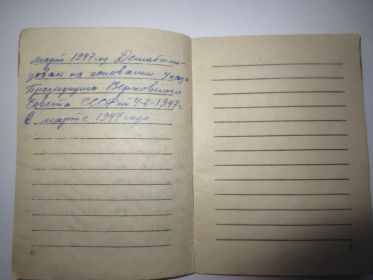 Март 1947 год Демобили-
зован на основании Указа
Президиума Верховного
Совета СССР от 4-2-1947 г
в марте 1947 года
6
7